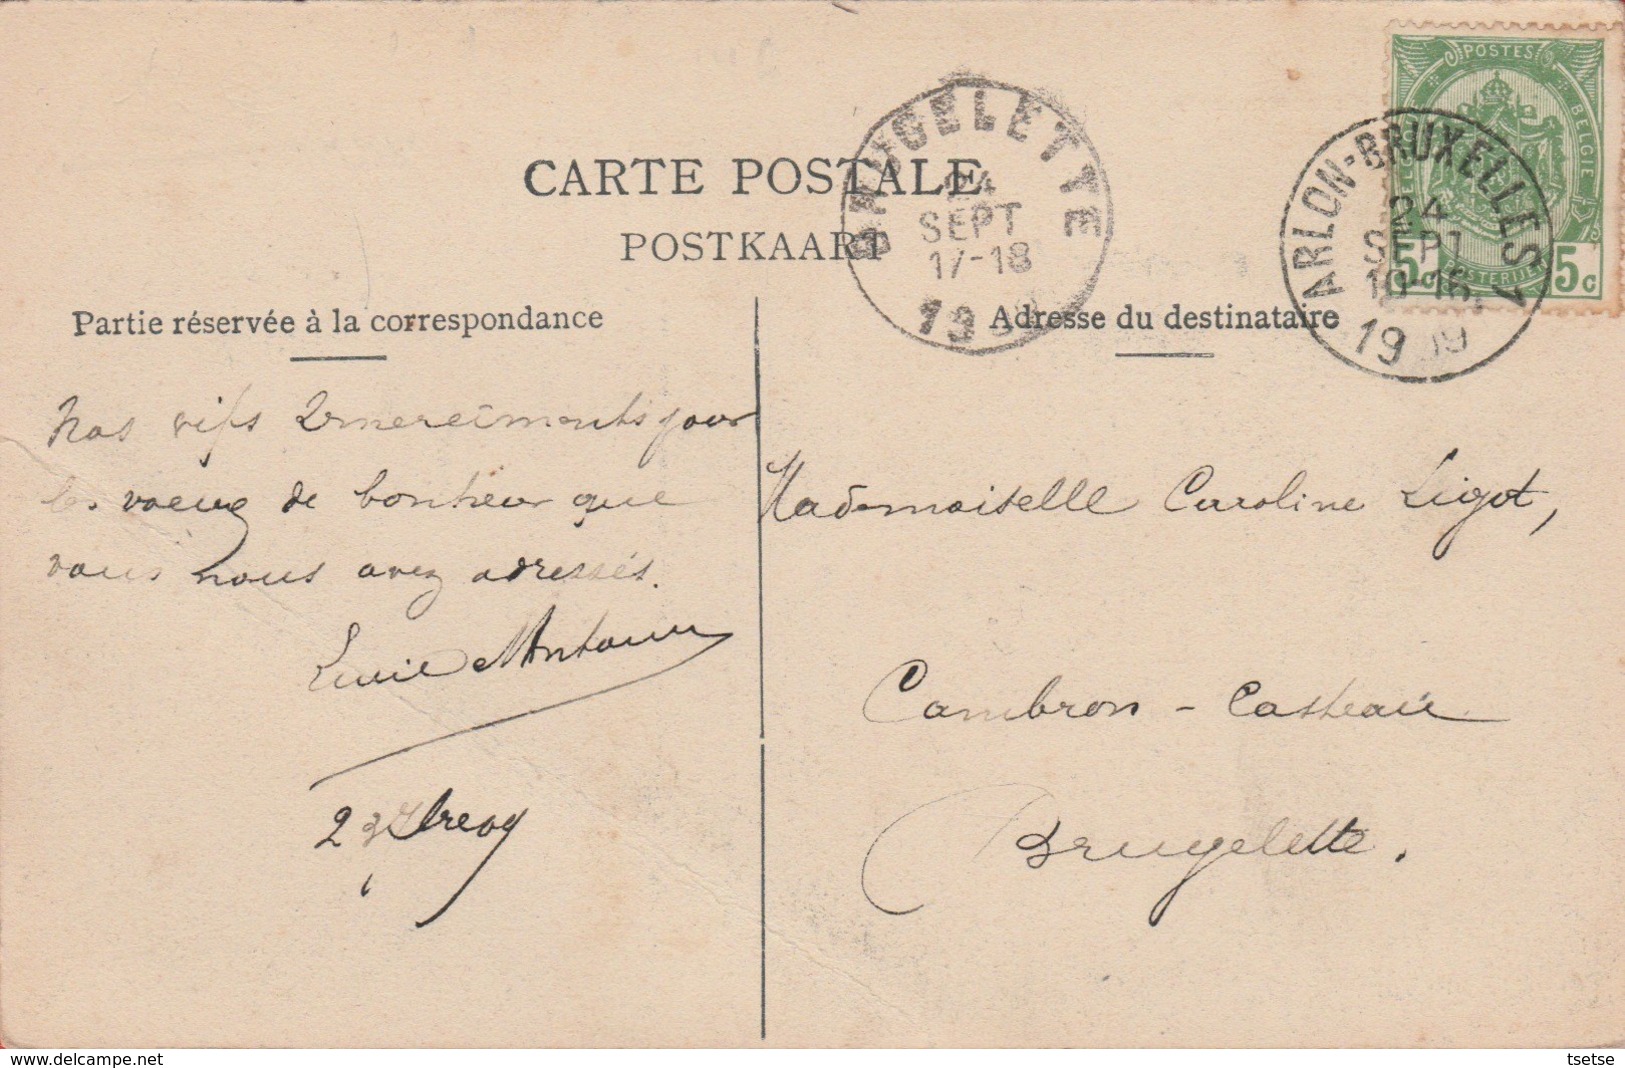 POSTES
BELGIQUE BELGIE
5c 5c
POSTERIJEN
ARLON-BRUXELLES 1
24
SEPT
19 09
BRUGELETTE
24
SEPT
17-18
19
CARTE POSTALE
POSTKAART
Partie réservée à la correspondance
Nos vifs remerciments pour
les voeux de bonheur que
vous nous avez adressés.
23 09
Adresse du destinataire
Mademoiselle Caroline Ligot,
Cambron - Casteau
Brugelette.
www.delcampe.net
tsetse